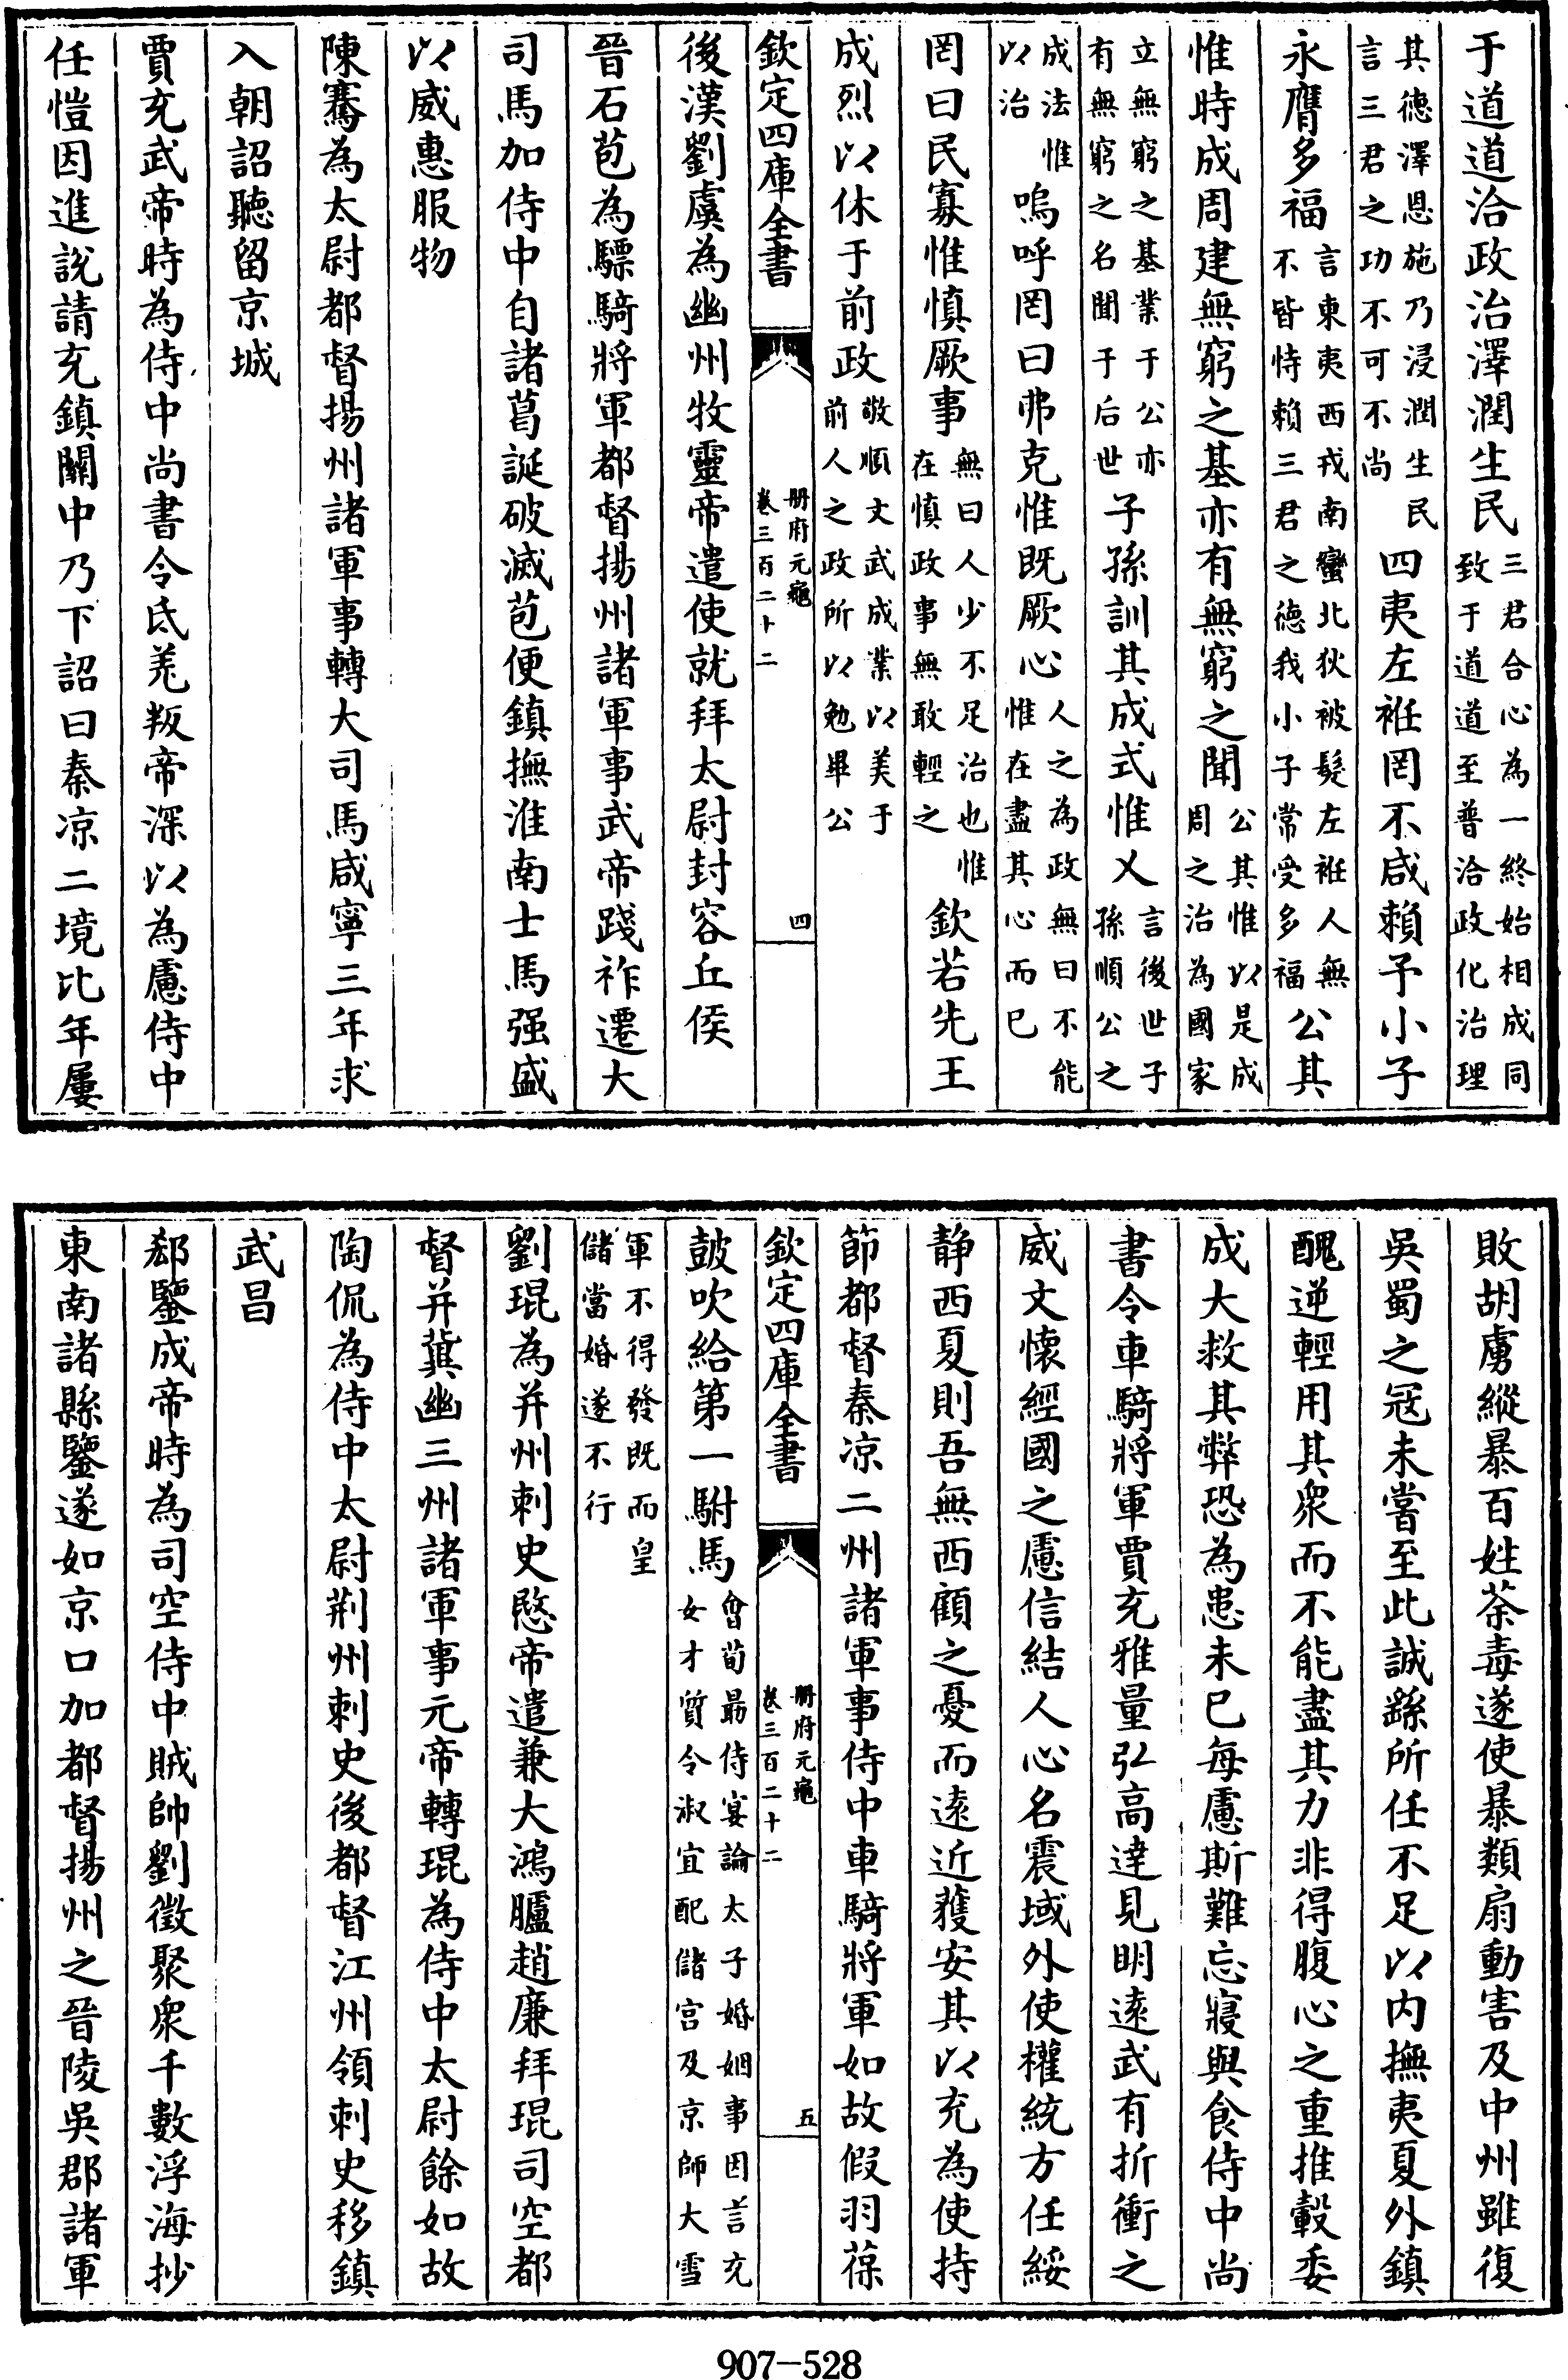 于道道洽政治澤潤生民三君合心為一終始相成同致于道道至普洽政化治理
其德澤恩施乃浸潤生民言三君之功不可不尚四夷左袵罔不咸賴予小子
永膺多福言東夷西戎南蠻北狄被髮左袵人無不皆恃賴三君之德我小子常受多福公其
惟時成周建無窮之基亦有無窮之聞公其惟以是成周之治為國家
立無窮之基業于公亦有無窮之名聞于后世子孫訓其成式惟乂言後世子孫順公之
成法惟以治嗚呼罔曰弗克惟既厥心人之為政無曰不能惟在盡其心而已
罔曰民寡惟慎厥事無曰人少不足治也惟在慎政事無敢輕之欽若先王
成烈以休于前政敬順文武成業以美于前人之政所以勉畢公
欽定四庫全書 冊府元龜卷三百二十二 四
後漢劉虞為幽州牧靈帝遣使就拜太尉封容丘侯
晉石苞為驃騎將軍都督揚州諸軍事武帝踐祚遷大
司馬加侍中自諸葛誕破滅苞便鎮撫淮南士馬强盛
以威惠服物
陳騫為太尉都督揚州諸軍事轉大司馬咸寧三年求
入朝詔聽留京城
賈充武帝時為侍中尚書令氐羌叛帝深以為慮侍中
任愷因進說請充鎮關中乃下詔曰秦凉二境比年屢
敗胡虜縱暴百姓荼毒遂使暴類扇動害及中州雖復
吳蜀之冦未嘗至此誠繇所任不足以内撫夷夏外鎮
醜逆輕用其衆而不能盡其力非得腹心之重推轂委
成大救其弊恐為患未已每慮斯難忘寢與食侍中尚
書令車騎將軍賈充雅量弘高達見明遠武有折衝之
威文懷經國之慮信結人心名震域外使權統方任綏
静西夏則吾無西顧之憂而遠近獲安其以充為使持
節都督秦凉二州諸軍事侍中車騎將軍如故假羽葆
欽定四庫全書 冊府元龜卷三百二十二 五
鼓吹給第一駙馬會荀朂侍宴論太子婚姻事因言充女才質令淑宜配儲宫及京師大雪
軍不得發既而皇儲當婚遂不行
劉琨為并州刺史愍帝遣兼大鴻臚趙廉拜琨司空都
督并冀幽三州諸軍事元帝轉琨為侍中太尉餘如故
陶侃為侍中太尉荆州刺史後都督江州領刺史移鎮
武昌
郄鑒成帝時為司空侍中賊帥劉徵聚衆千數浮海抄
東南諸縣鑒遂如京口加都督揚州之晉陵吳郡諸軍
907-528